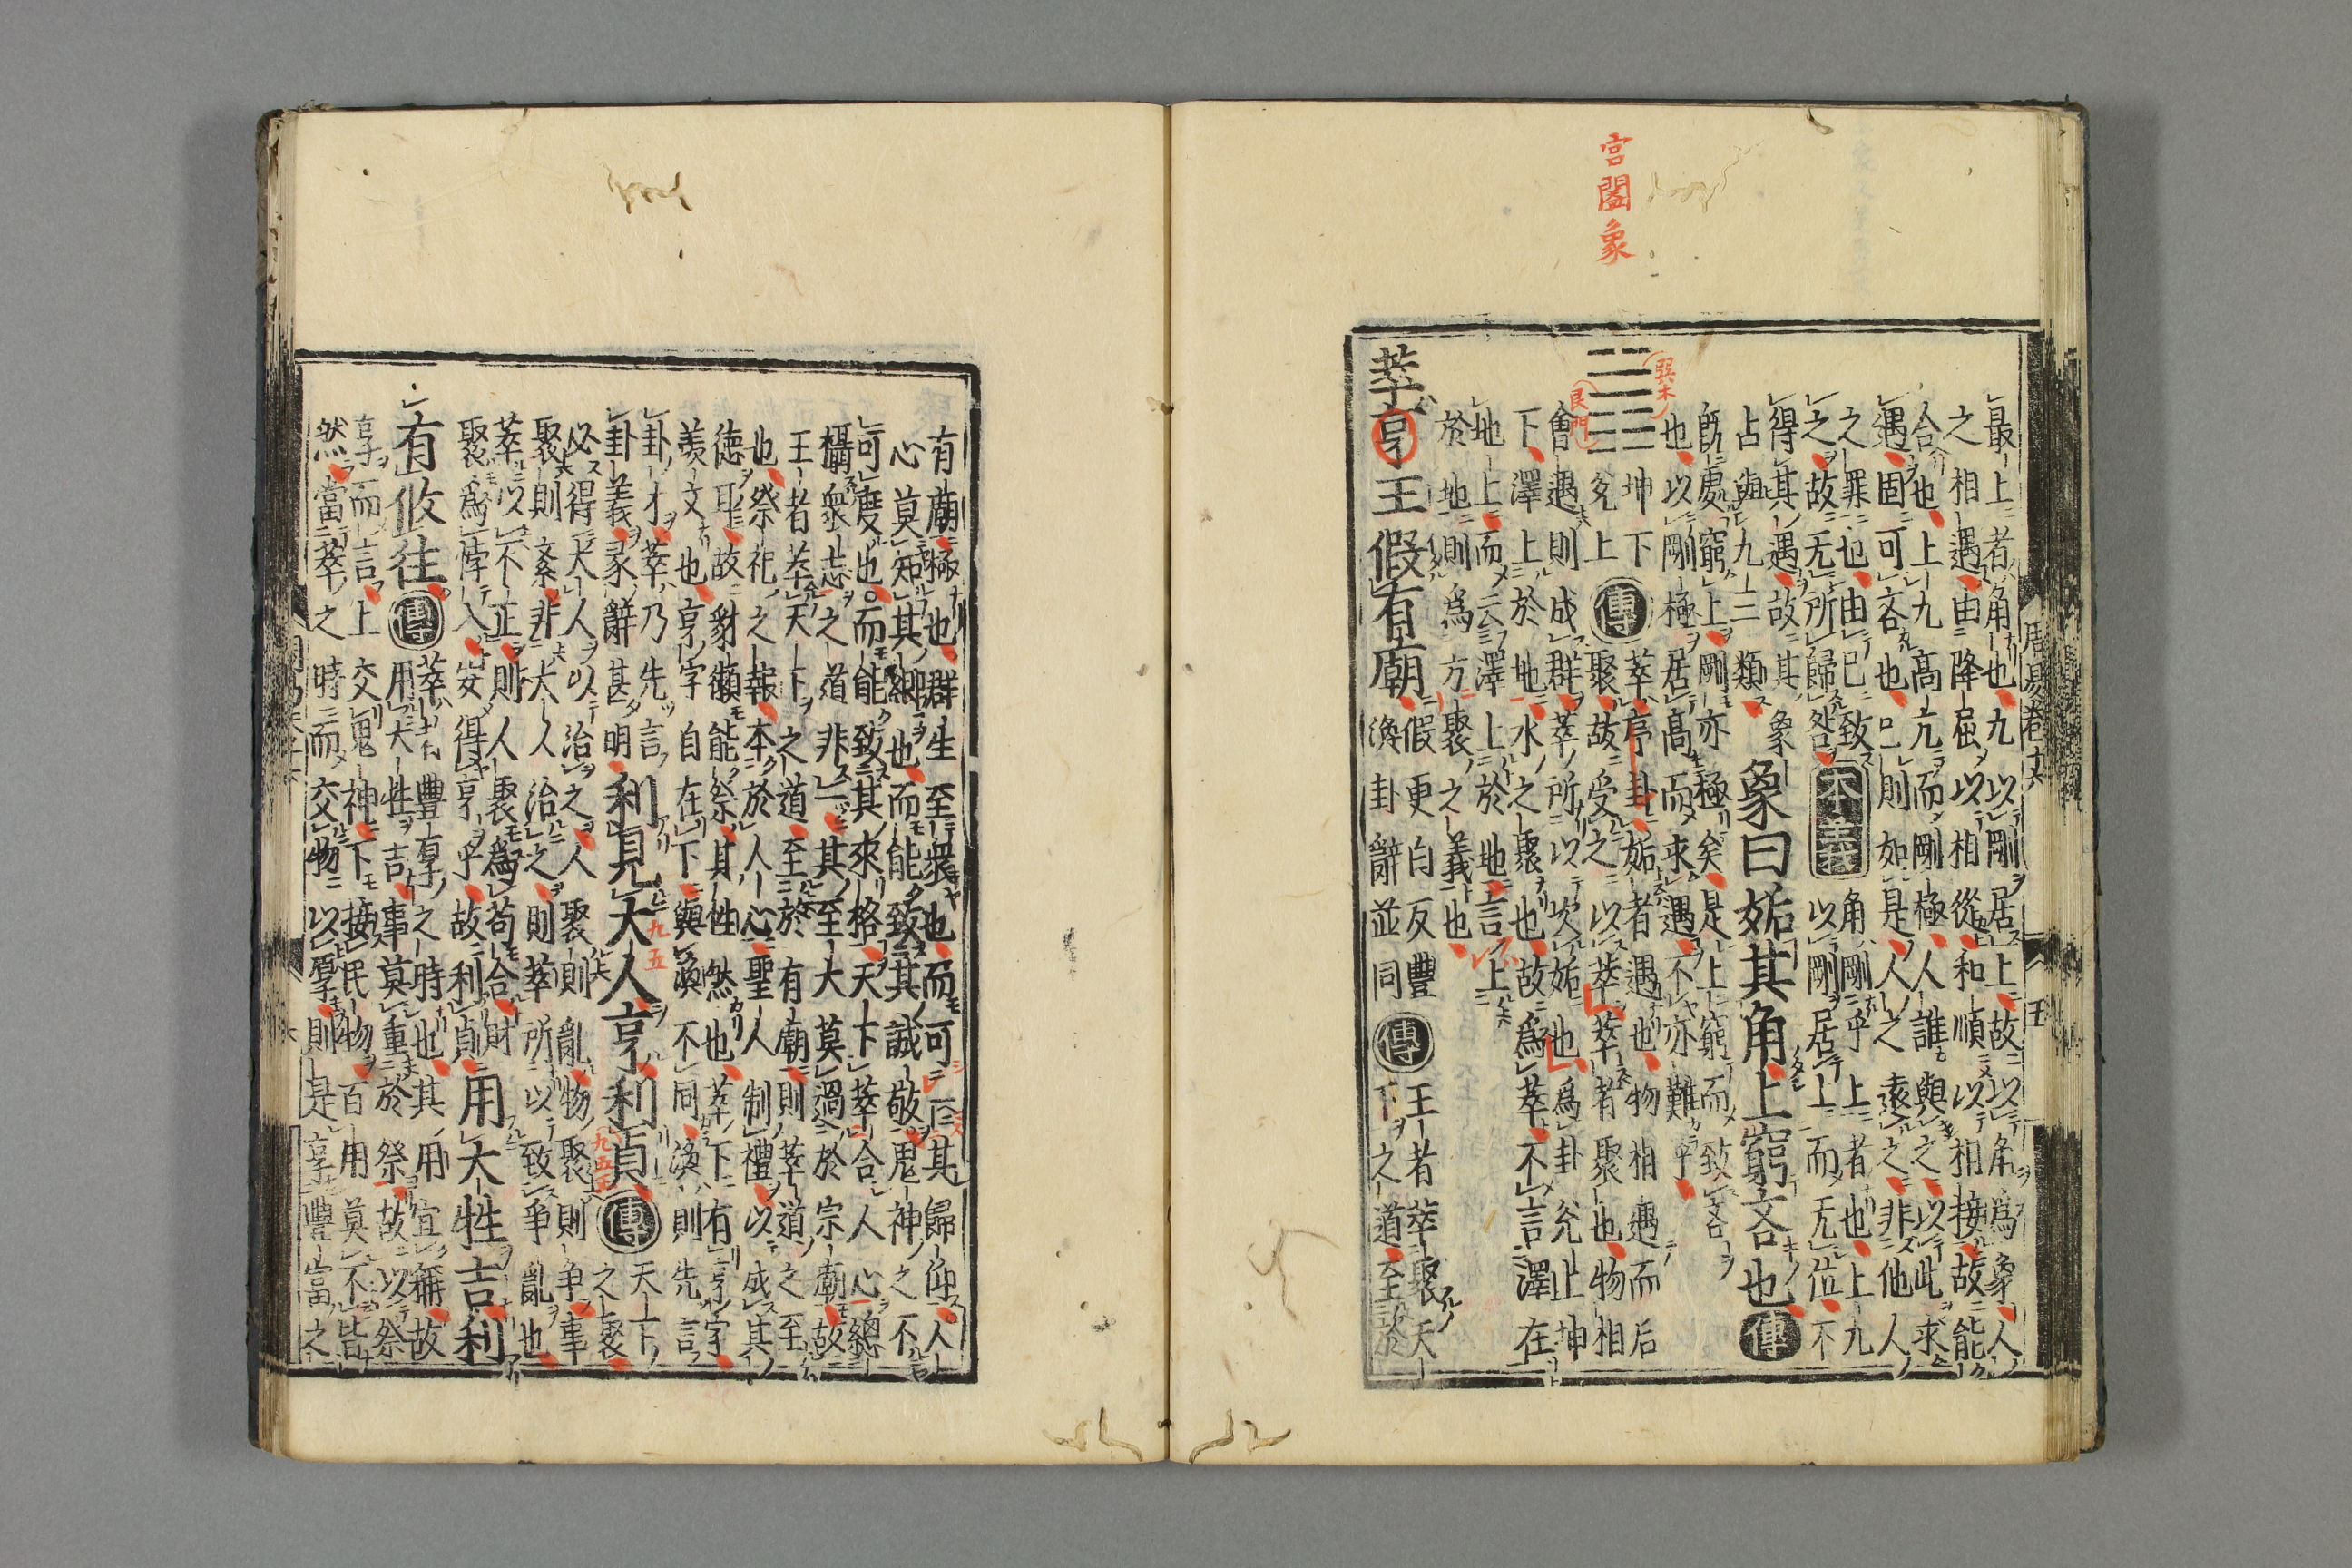 宮闔象
周易卷十六
五
最上者角也九以剛居上故以角爲象人
之相遇由降屈以相從和順以相接故能
合也上九高亢而剛極人誰與之以此求
遇固可吝也已則如是人之遠之非他人
之罪也由已致
之故无所歸咎 本義 角剛乎上者也上九
以剛居上而无位不
得其遇故其象
占與九三類 象曰姤其角上窮吝也 傳
既處窮上剛亦極矣是上窮而致吝
也以剛極居高而求遇不亦難乎
巽木
艮門
坤下
兌上 傳 萃序卦姤者遇也物相遇而后
聚故受之以萃萃者聚也物相
會遇則成群萃所以次姤也爲卦兌上坤
下澤上於地水之聚也故爲萃不言澤在
地上而云澤上於地言上
於地則爲方聚之義也
萃亨王假有廟 假更白反豐
渙卦辭並同 傳 王者萃聚天
下之道至於
有廟極也群生至衆也而可一其歸仰人
心莫知其郷也而能致其誠敬鬼神之不
可度也而能致其來格天下萃合人心總
攝衆志之道非一其至大莫過於宗廟故
王者萃天下之道至於有廟則萃道之至
也祭祀之報本於人心聖人制禮以成其
德耳故豺獺能祭其性然也萃下有亨字
羨文也亨字自在下與渙不同渙則先言
卦才萃乃先言
卦義彖辭甚明 利見大人亨利貞 傳 天下之聚
九五
九五正
必得大人以治之人聚則亂物聚則爭事
聚則紊非大人治之則萃所以致爭亂也
萃以不正則人聚爲苟合財
聚爲悖入安得亨乎故利貞 用大牲吉利
有攸往 傳 萃者豐厚之時也其用宜稱故
用大牲吉事莫重於祭故以祭
享而言上交鬼神下接民物百用莫不皆
然當萃之時而交物以厚則是享豐富之